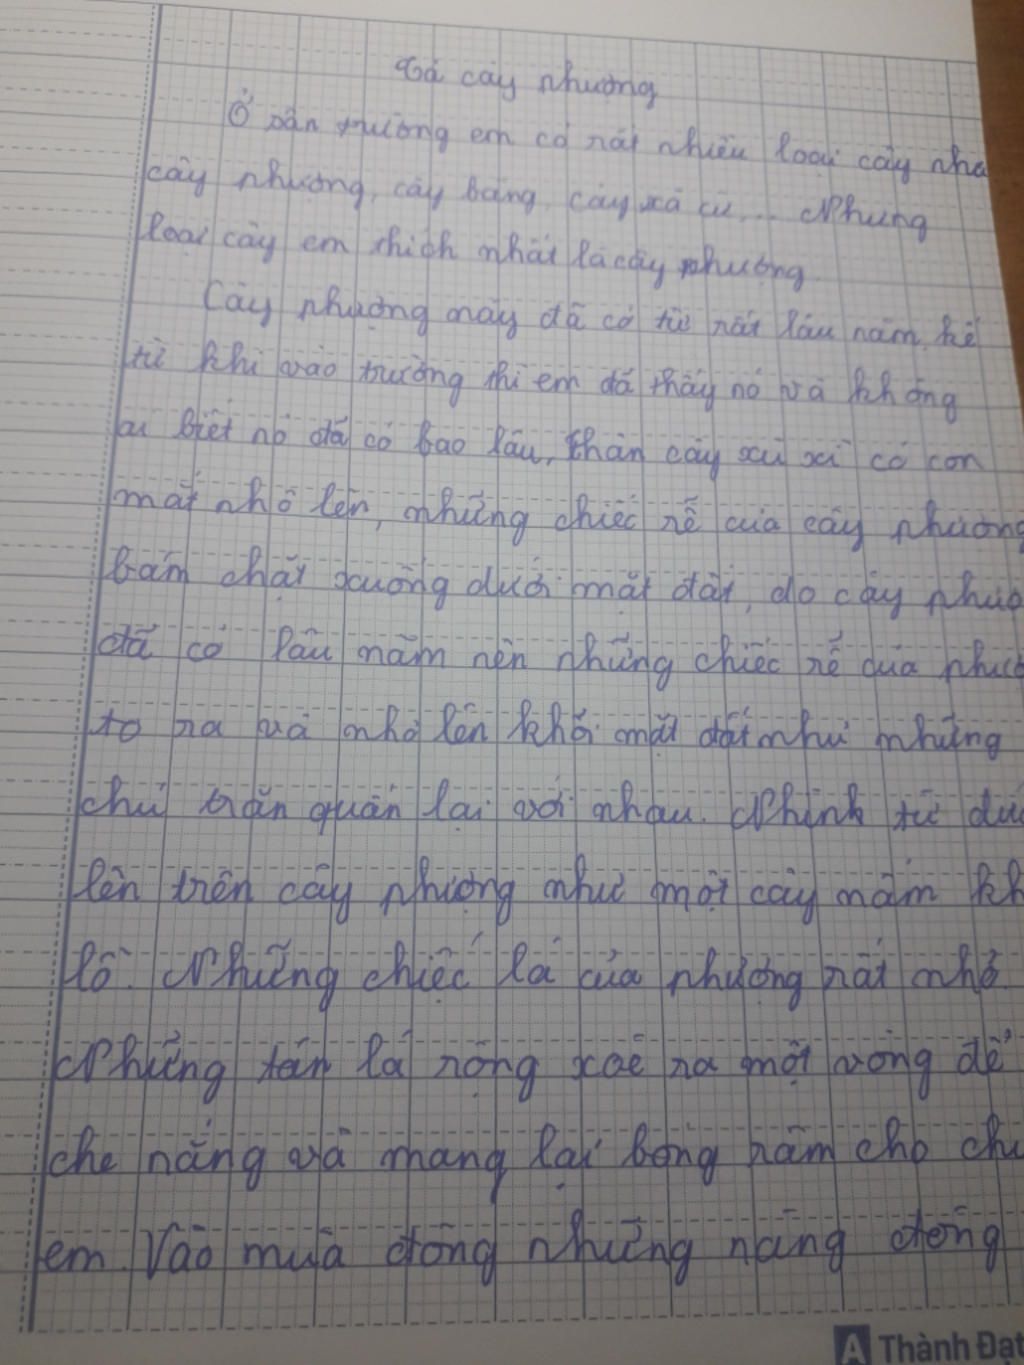 Tả cây phượng
Ở sân trường em có rất nhiều loại cây như
cây phượng, cây bàng, cây xà cừ,... Nhưng
loại cây em thích nhất là cây phượng.
Cây phượng này đã có từ rất lâu năm, kể
từ khi vào trường thì em đã thấy nó và không
ai biết nó đã có bao lâu, thân cây xù xì có con
mắt nhô lên, những chiếc rễ của cây phượng
bám chặt xuống dưới mặt đất, do cây
đã có lâu năm nên những chiếc rễ của
to ra và nhô lên khỏi mặt đất như những
chú trăn quấn lại với nhau. Nhìn từ
lên trên cây phượng như một cây nấm
lồ. Những chiếc lá của phượng rất nhỏ.
Những tán lá rộng xoè ra một vòng để
che nắng và mang lại bóng râm cho
em. Vào mùa đông những nàng đông
A Thành Đạt